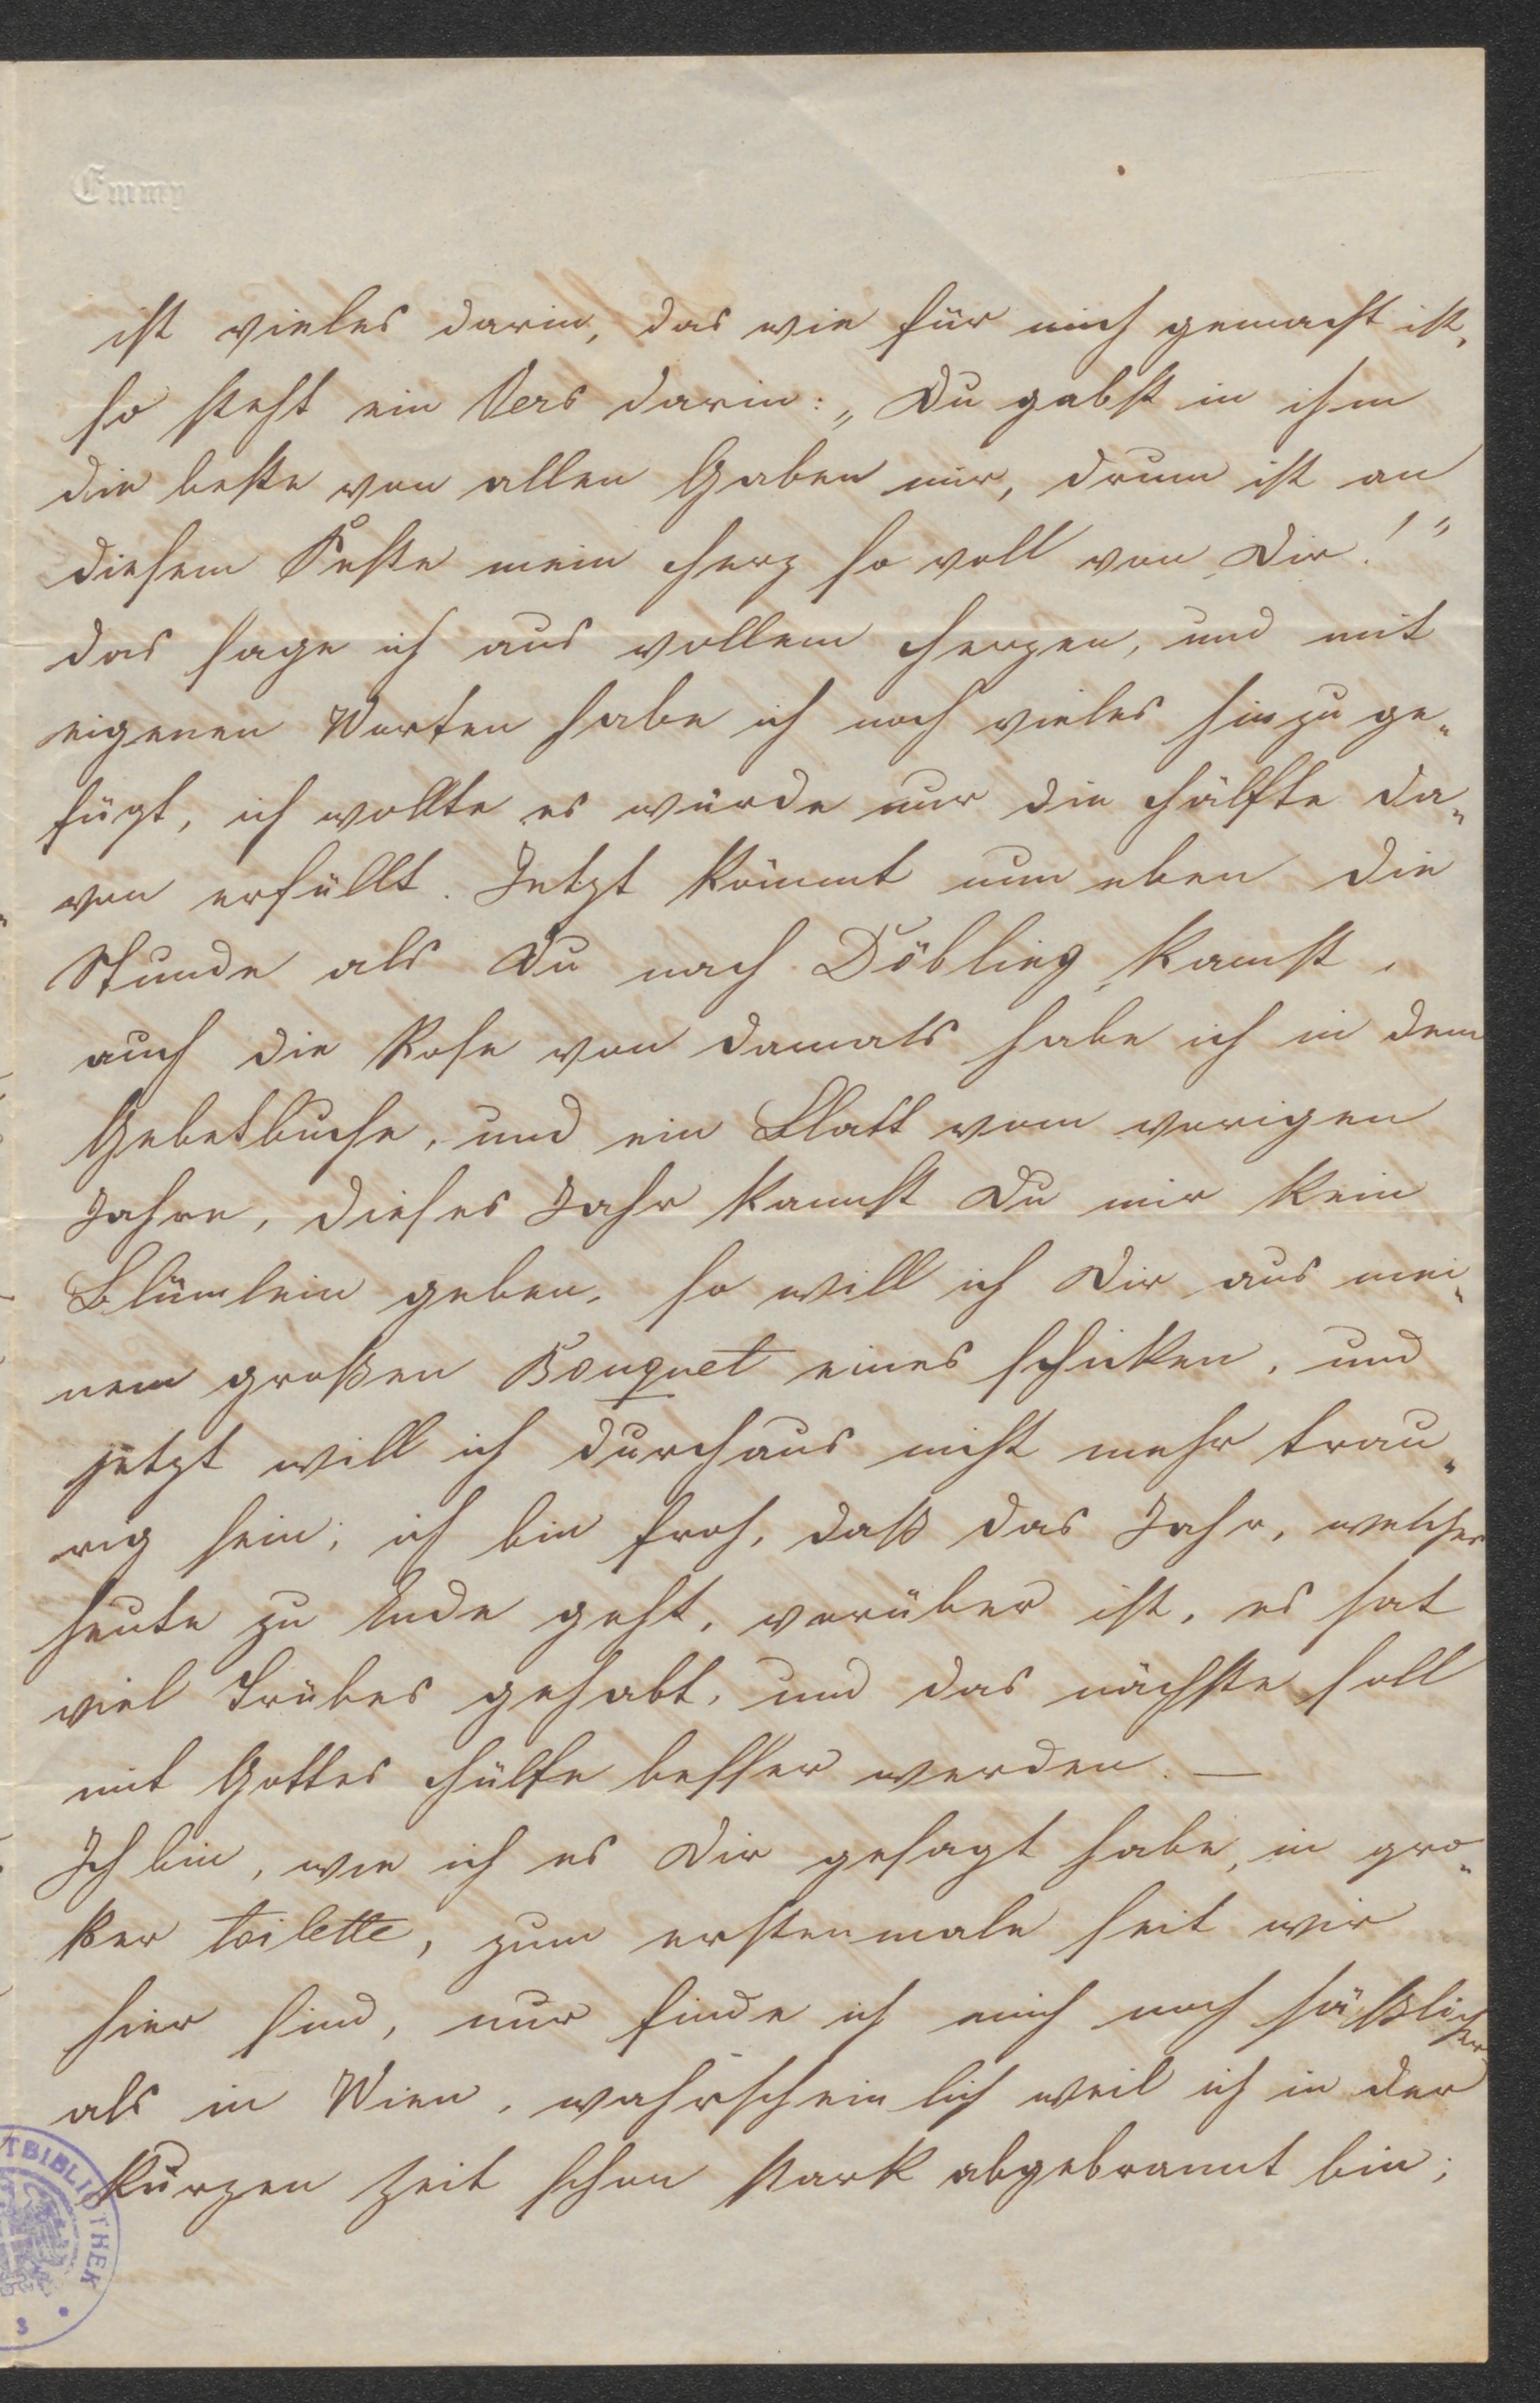 Emmy
ist vieles darin, das wie für mich gemacht ist,
so steht ein Vers darin: „Du gabst in ihm
die beste von allen Gaben mir, drum ist an
diesem Feste mein Herz so voll von Dir!“
das sage ich aus vollem Herzen, und mit
eigenen Worten habe ich noch vieles hinzu ge„
fügt, ich wollte es würde nur die Hälfte da„
von erfüllt. Jetzt kömmt nun eben die
Stunde als Du nach Döbling kamst,
auch die Rose von damals habe ich in dem
Gebetbuche, und ein Blatt vom vorigen
Jahre, dieses Jahr kannst Du mir kein
Blümlein geben, so will ich Dir aus mei„
nem großen Bouquet eines schicken, und
jetzt will ich durchaus nicht mehr trau„
rig sein; ich bin froh, daß das Jahr, welches
heute zu Ende geht, vorüber ist, es hat
viel Trübes gehabt, und das nächste soll
mit Gottes Hülfe besser werden. —
Ich bin, wie ich es Dir gesagt habe, in gro„
ßer toilette, zum erstenmale seit wir
hier sind, nur finde ich mich noch häßlicher
als in Wien, wahrscheinlich weil ich in der
kurzen Zeit schon stark abgebrannt bin;
TBIBLIOTHEK